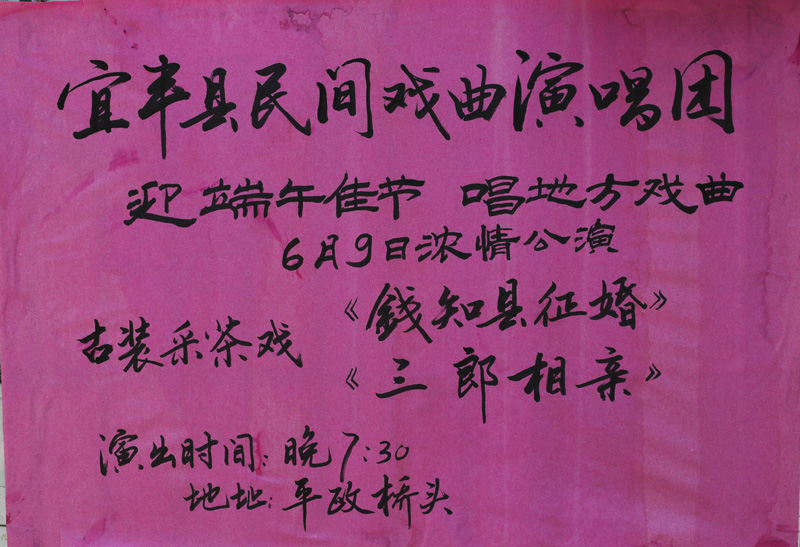 宜丰县民间戏曲演唱团
迎端午佳节 唱地方戏曲
6月9日浓情公演
古装采茶戏
《錢知县征婚》
《三郎相亲》
演出时间:晚7:30
地址:平政桥头